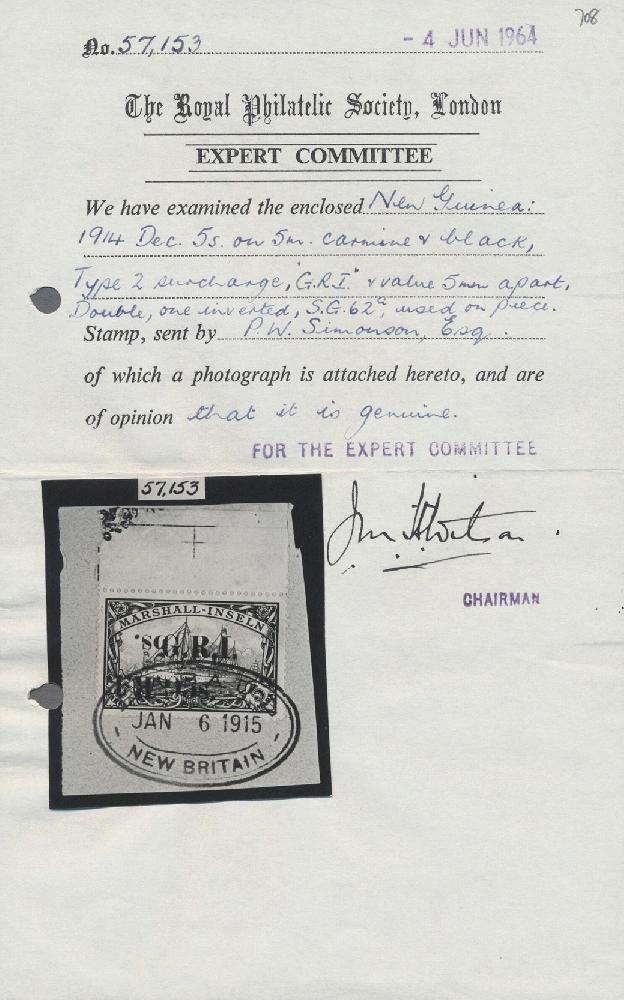 708
No. 57,153 - 4 JUN 1964
The Royal Philatelic Society, London
EXPERT COMMITTEE
We have examined the enclosed New Guinea:
1914 Dec. 5s. on 5m. carmine & black,
Type 2 surcharge, "G.R.I." & value 5mm apart,
Double, one inverted, S.G. 62a, used on piece.
Stamp, sent by P.W. Simonson, Esq.
of which a photograph is attached hereto, and are
of opinion that it is genuine.
FOR THE EXPERT COMMITTEE
57,153
CHAIRMAN
MARSHALL-INSELN
5s. G.R.I.
JAN 6 1915
NEW BRITAIN